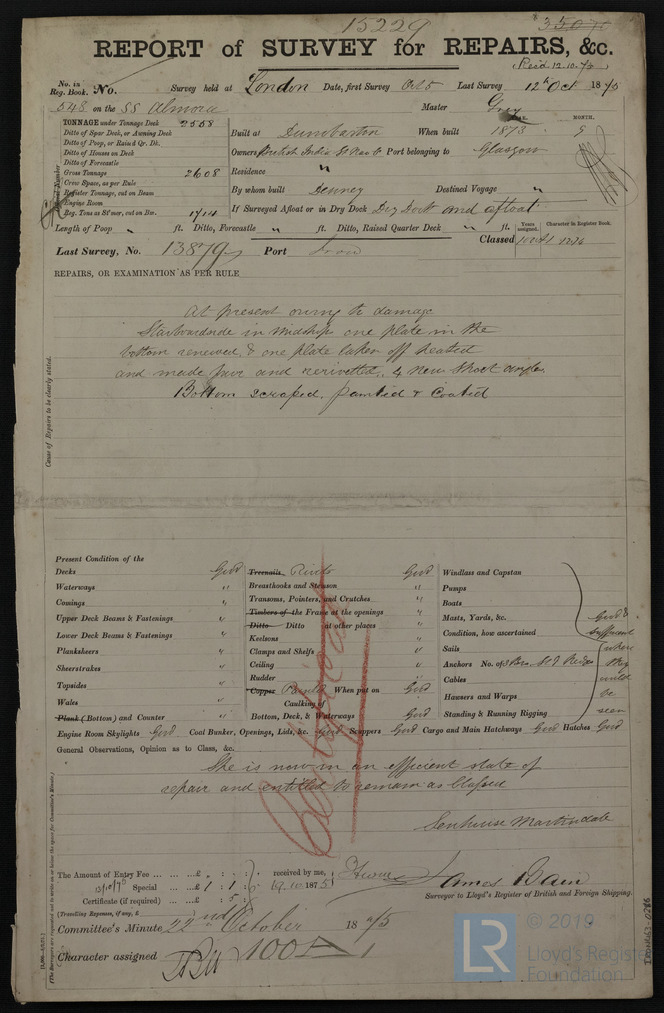 15229
REPORT of SURVEY for REPAIRS, &c.
(Rec'd 12.10.75)
No. in Reg. Book. No. Survey held at London Date, first Survey Oct 5 Last Survey 12th Oct 1875
548 on the SS Almora Master Grey
TONNAGE under Tonnage Deck 2558
Ditto of Spar Deck, or Awning Deck
Ditto of Poop, or Raised Qr. Dk.
Ditto of Houses on Deck
Ditto of Forecastle
Gross Tonnage 2608
Crew Space, as per Rule
Register Tonnage, cut on Beam
Engine Room
Reg. Tons as St'mer, cut on Bm. 1714
YEAR. MONTH.
Built at Dumbarton When built 1873 9
Owners British India St Nav Co Port belonging to Glasgow
Residence "
By whom built Denney Destined Voyage "
If Surveyed Afloat or in Dry Dock Dry Dock and afloat
Length of Poop " ft. Ditto, Forecastle " ft. Ditto, Raised Quarter Deck " ft.
Years assigned. Character in Register Book.
Classed 100A1
Last Survey, No. 13879 Port Lon
REPAIRS, OR EXAMINATION AS PER RULE
Cause of Repairs to be clearly stated.
At present owing to damage
Starboardside in midship one plate in the
bottom renewed, & one plate taken off heated
and made fair and rerivetted, 4 new short angles
Bottom scraped, painted & coated
Present Condition of the
Decks Good
Waterways "
Comings "
Upper Deck Beams & Fastenings "
Lower Deck Beams & Fastenings "
Planksheers "
Sheerstrakes "
Topsides "
Wales "
Plank (Bottom) and Counter "
Treenails Rivets Good
Breasthooks and Stemson "
Transoms, Pointers, and Crutches "
Timbers of the Frame at the openings "
Ditto Ditto at other places "
Keelsons "
Clamps and Shelfs "
Ceiling "
Rudder "
Copper Painted When put on Good
Caulking of
Bottom, Deck, & Waterways Good
Windlass and Capstan
Pumps
Boats
Masts, Yards, &c. Good &
Condition, how ascertained sufficient
Sails where
Anchors No. of
Cables
Hawsers and Warps be
Standing & Running Rigging seen
Engine Room Skylights Good Coal Bunker, Openings, Lids, &c. Good Scuppers Good Cargo and Main Hatchways Good Hatches Good
General Observations, Opinion as to Class, &c.
She is now in an efficient state of
repair and entitled to remain as Classed
Senhouse Martindale
The Amount of Entry Fee ... £ : : received by me,
Special ... £ 1 : 1 : 0 19.10.1875
Certificate (if required) ... £ : 5 :
(Travelling Expenses, if any, £
James Bain
Surveyor to Lloyd's Register of British and Foreign Shipping.
Committee's Minute 22nd October 1875
Character assigned 100A1
Certificate
IRON163-0286
LR
© 2019
Lloyd's Register
Foundation